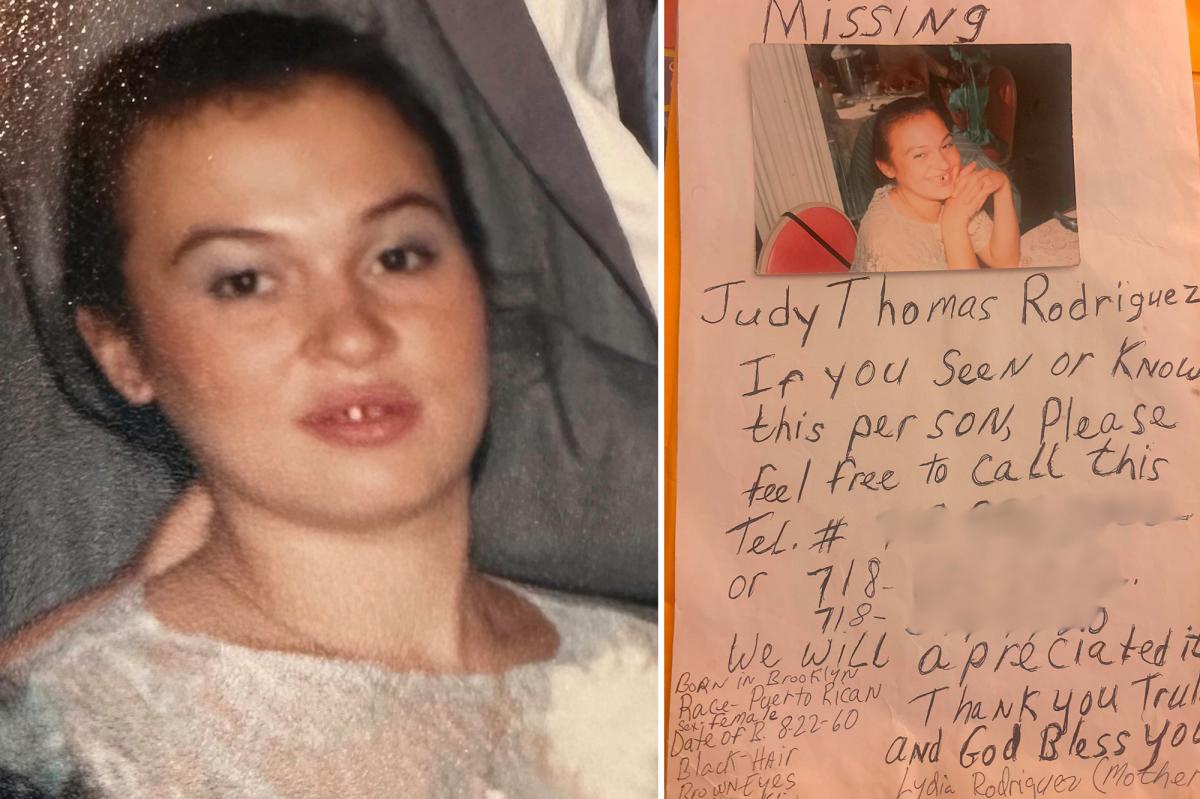 Missing
Judy Thomas Rodriguez
If you Seen or Know
this person, Please
feel free to call this
Tel. #
or 718-
718-
We will apreciated it
Thank you Trul
and God Bless you
Lydia Rodriguez (Mother
Born in Brooklyn
Race- Puerto Rican
Sex: Female
Date of B. 8-22-60
Black-Hair
Brown Eyes